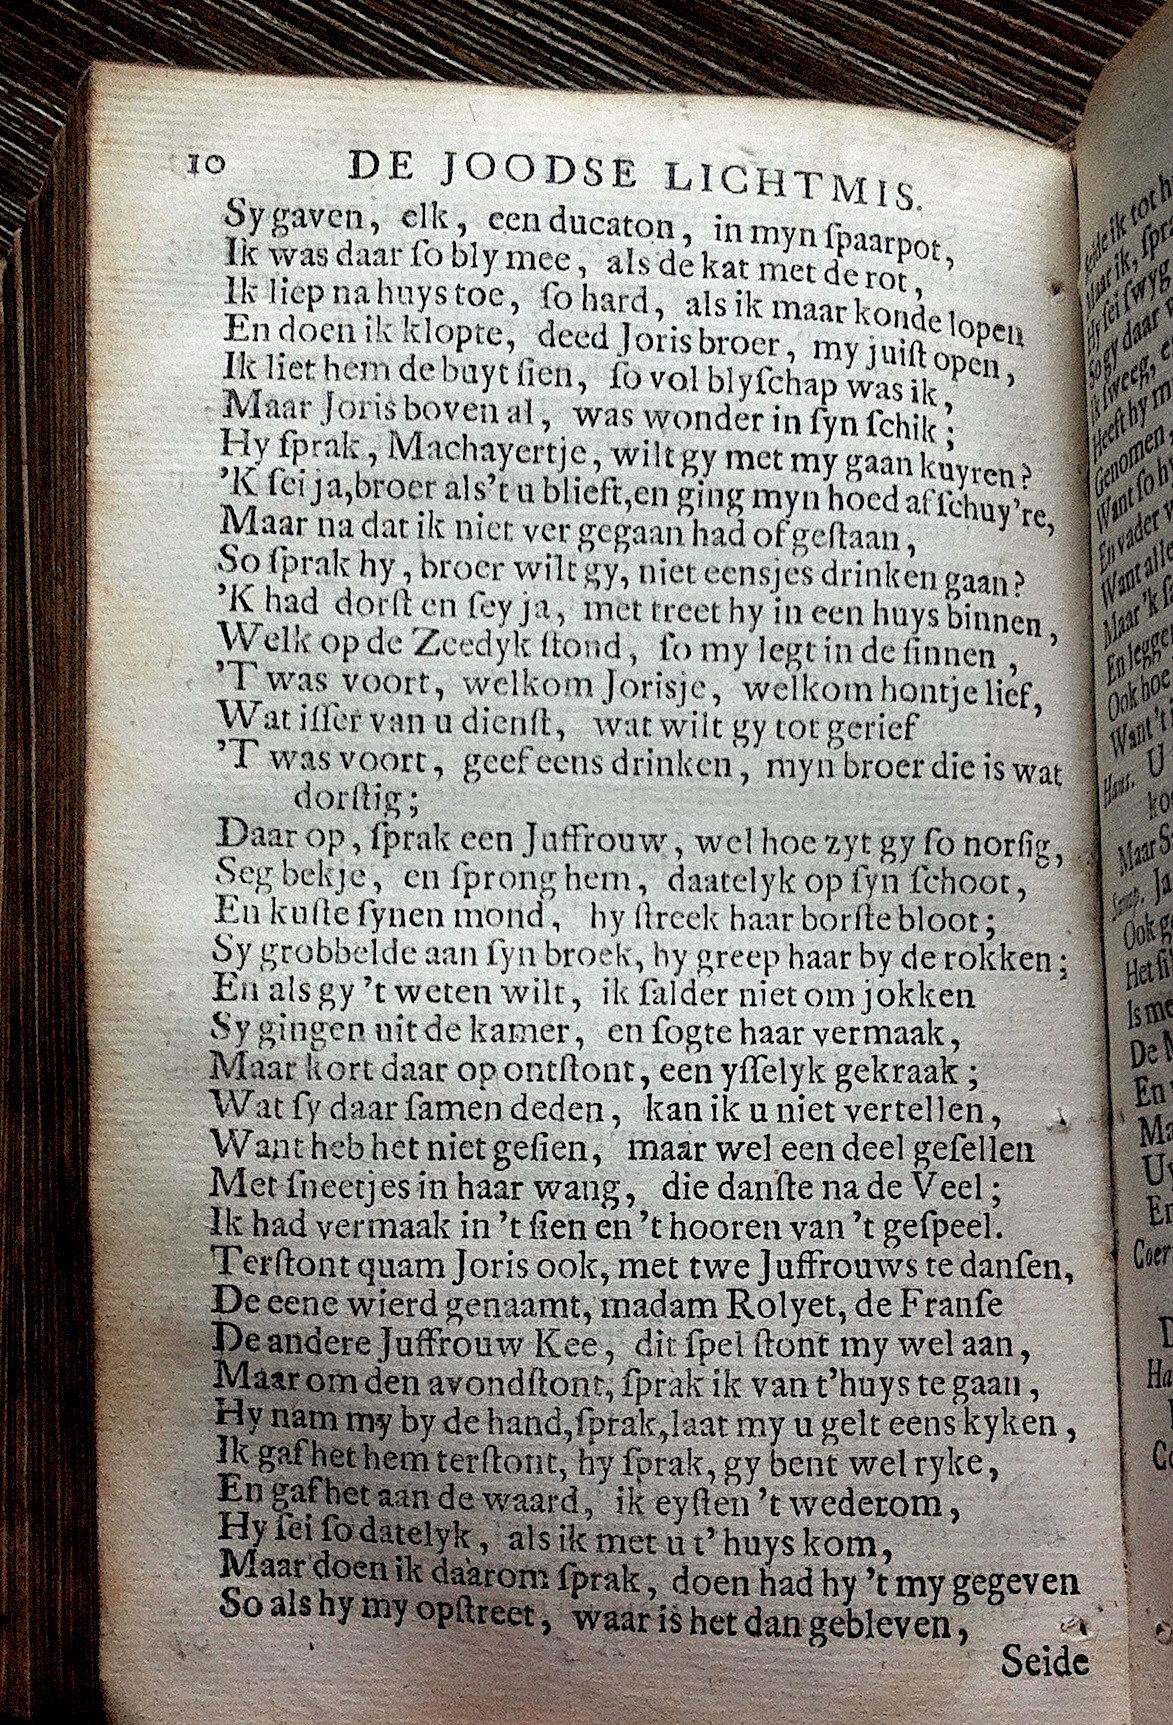 10 DE JOODSE LICHTMIS.
Sy gaven, elk, een ducaton, in myn ſpaarpot,
Ik was daar ſo bly mee, als de kat met de rot,
Ik liep na huys toe, ſo hard, als ik maar konde lopen
En doen ik klopte, deed Joris broer, my juiſt open,
Ik liet hem de buyt ſien, ſo vol blyſchap was ik,
Maar Joris boven al, was wonder in ſyn ſchik;
Hy ſprak, Machayertje, wilt gy met my gaan kuyren?
'K ſei ja, broer als't u blieft, en ging myn hoed afſchuy're,
Maar na dat ik niet ver gegaan had of geſtaan,
So ſprak hy, broer wilt gy, niet eensjes drinken gaan?
'K had dorſt en ſey ja, met treet hy in een huys binnen,
Welk op de Zeedyk ſtond, ſo my legt in de ſinnen,
'T was voort, welkom Jorisje, welkom hontje lief,
Wat iſſer van u dienſt, wat wilt gy tot gerief
'T was voort, geef eens drinken, myn broer die is wat
dorſtig;
Daar op, ſprak een Juffrouw, wel hoe zyt gy ſo norſig,
Seg bekje, en ſprong hem, daatelyk op ſyn ſchoot,
En kuſte ſynen mond, hy ſtreek haar borſte bloot;
Sy grobbelde aan ſyn broek, hy greep haar by de rokken;
En als gy 't weten wilt, ik ſalder niet om jokken
Sy gingen uit de kamer, en ſogte haar vermaak,
Maar kort daar op ontſtont, een yſſelyk gekraak;
Wat ſy daar ſamen deden, kan ik u niet vertellen,
Want heb het niet geſien, maar wel een deel geſellen
Met ſneetjes in haar wang, die danſte na de Veel;
Ik had vermaak in 't ſien en 't hooren van 't geſpeel.
Terſtont quam Joris ook, met twe Juffrouws te danſen,
De eene wierd genaamt, madam Rolyet, de Franſe
De andere Juffrouw Kee, dit ſpel ſtont my wel aan,
Maar om den avondſtont, ſprak ik van t'huys te gaan,
Hy nam my by de hand, ſprak, laat my u gelt eens kyken,
Ik gaf het hem terſtont, hy ſprak, gy bent wel ryke,
En gaf het aan de waard, ik eyſten 't wederom,
Hy ſei ſo datelyk, als ik met u t' huys kom,
Maar doen ik daarom ſprak, doen had hy 't my gegeven
So als hy my opſtreet, waar is het dan gebleven,
Seide